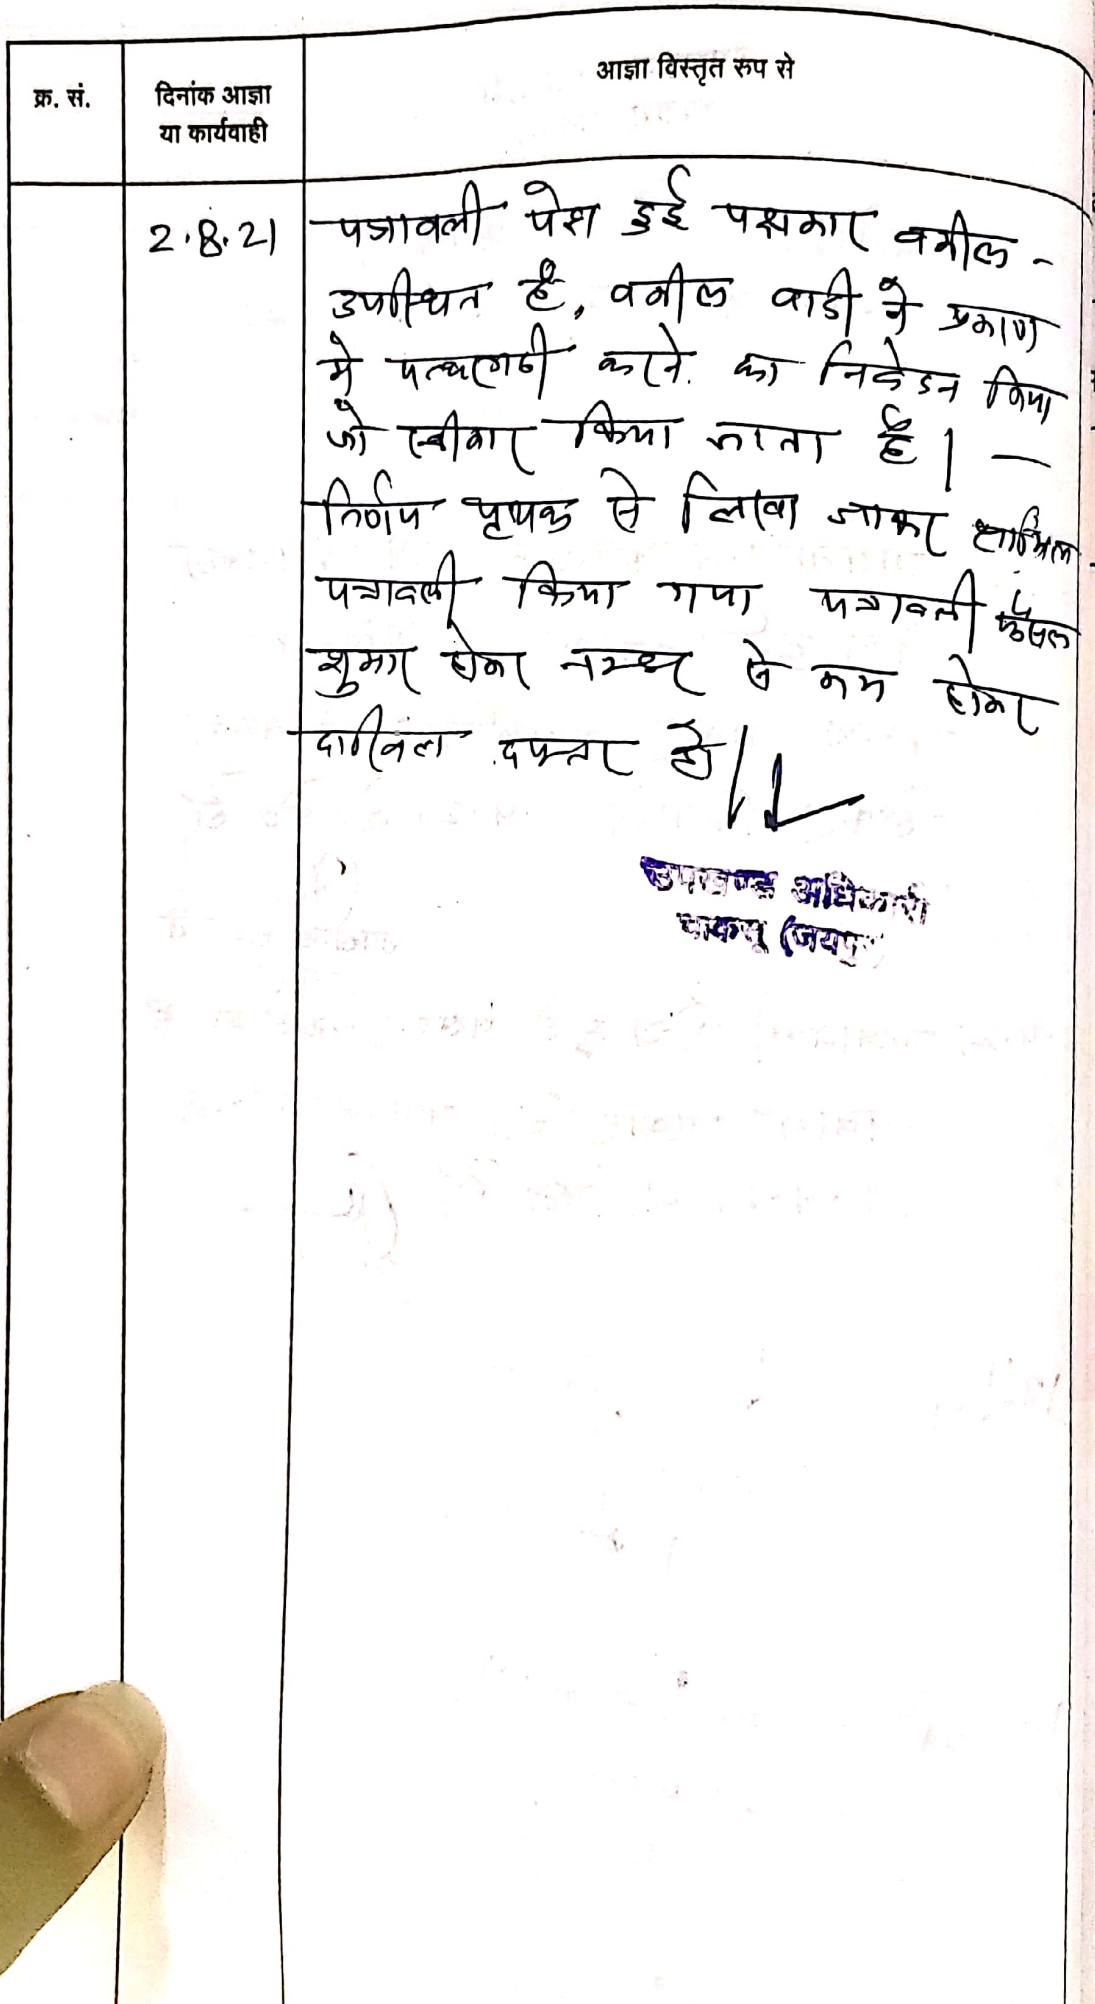 क्र. सं.
दिनांक आज्ञा
या कार्यवाही
आज्ञा विस्तृत रूप से
2.8.21
पत्रावली पेश हुई पक्षकार वकील -
उपस्थित है, वकील वादी ने प्रकरण
मे पत्थरगढी करने का निवेदन किया
जो स्वीकार किया जाता है । —
निर्णय पृथक से लिखा जाकर शामिल
पत्रावली किया गया पत्रावली फैसल
शुमार होकर नम्बर से कम होकर
दाखिल दफ्तर हो ।
उपखण्ड अधिकारी
चाकसू (जयपुर